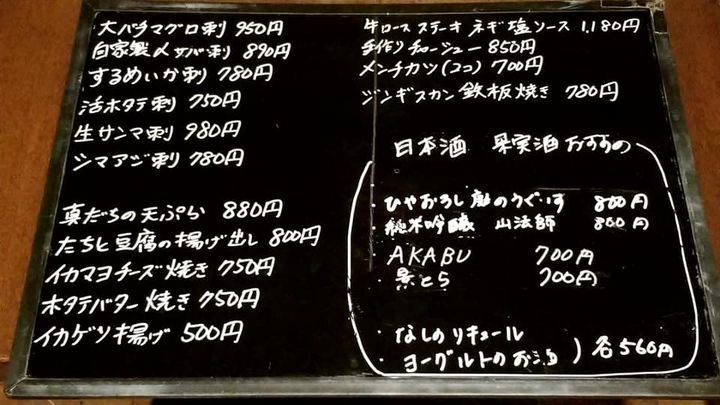 大バチマグロ刺 950円
自家製〆サバ刺 890円
するめいか刺 780円
活ホタテ刺 750円
生サンマ刺 980円
シマアジ刺 780円
真だちの天ぷら 880円
たちと豆腐の揚げ出し 800円
イカマヨチーズ焼き 750円
ホタテバター焼き 750円
イカゲソ揚げ 500円
牛ロースステーキ ネギ塩ソース 1,180円
手作りチャーシュー 850円
メンチカツ(2コ) 700円
ジンギスカン鉄板焼き 780円
日本酒 果実酒おすすめ
・ひやおろし 庭のうぐいす 800円
・純米吟醸 山法師 800円
・AKABU 700円
・景とら 700円
・なしのリキュール
・ヨーグルトのお酒 ) 各560円